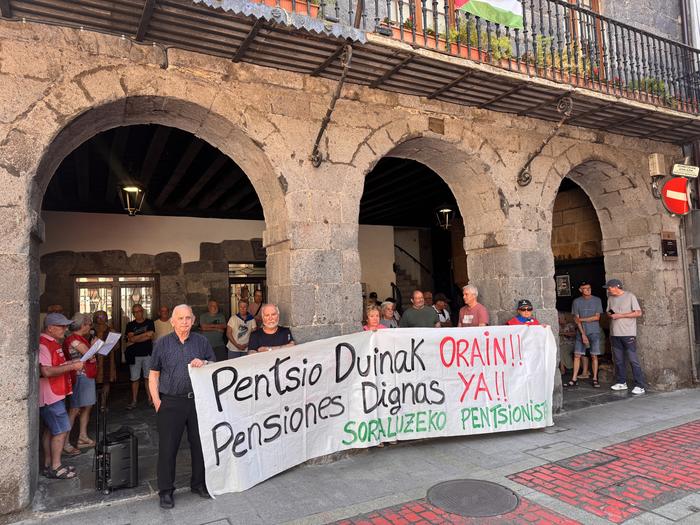 Pentsio Duinak ORAIN!!
Pensiones Dignas YA!!
SORALUZEKO PENTSIONIST